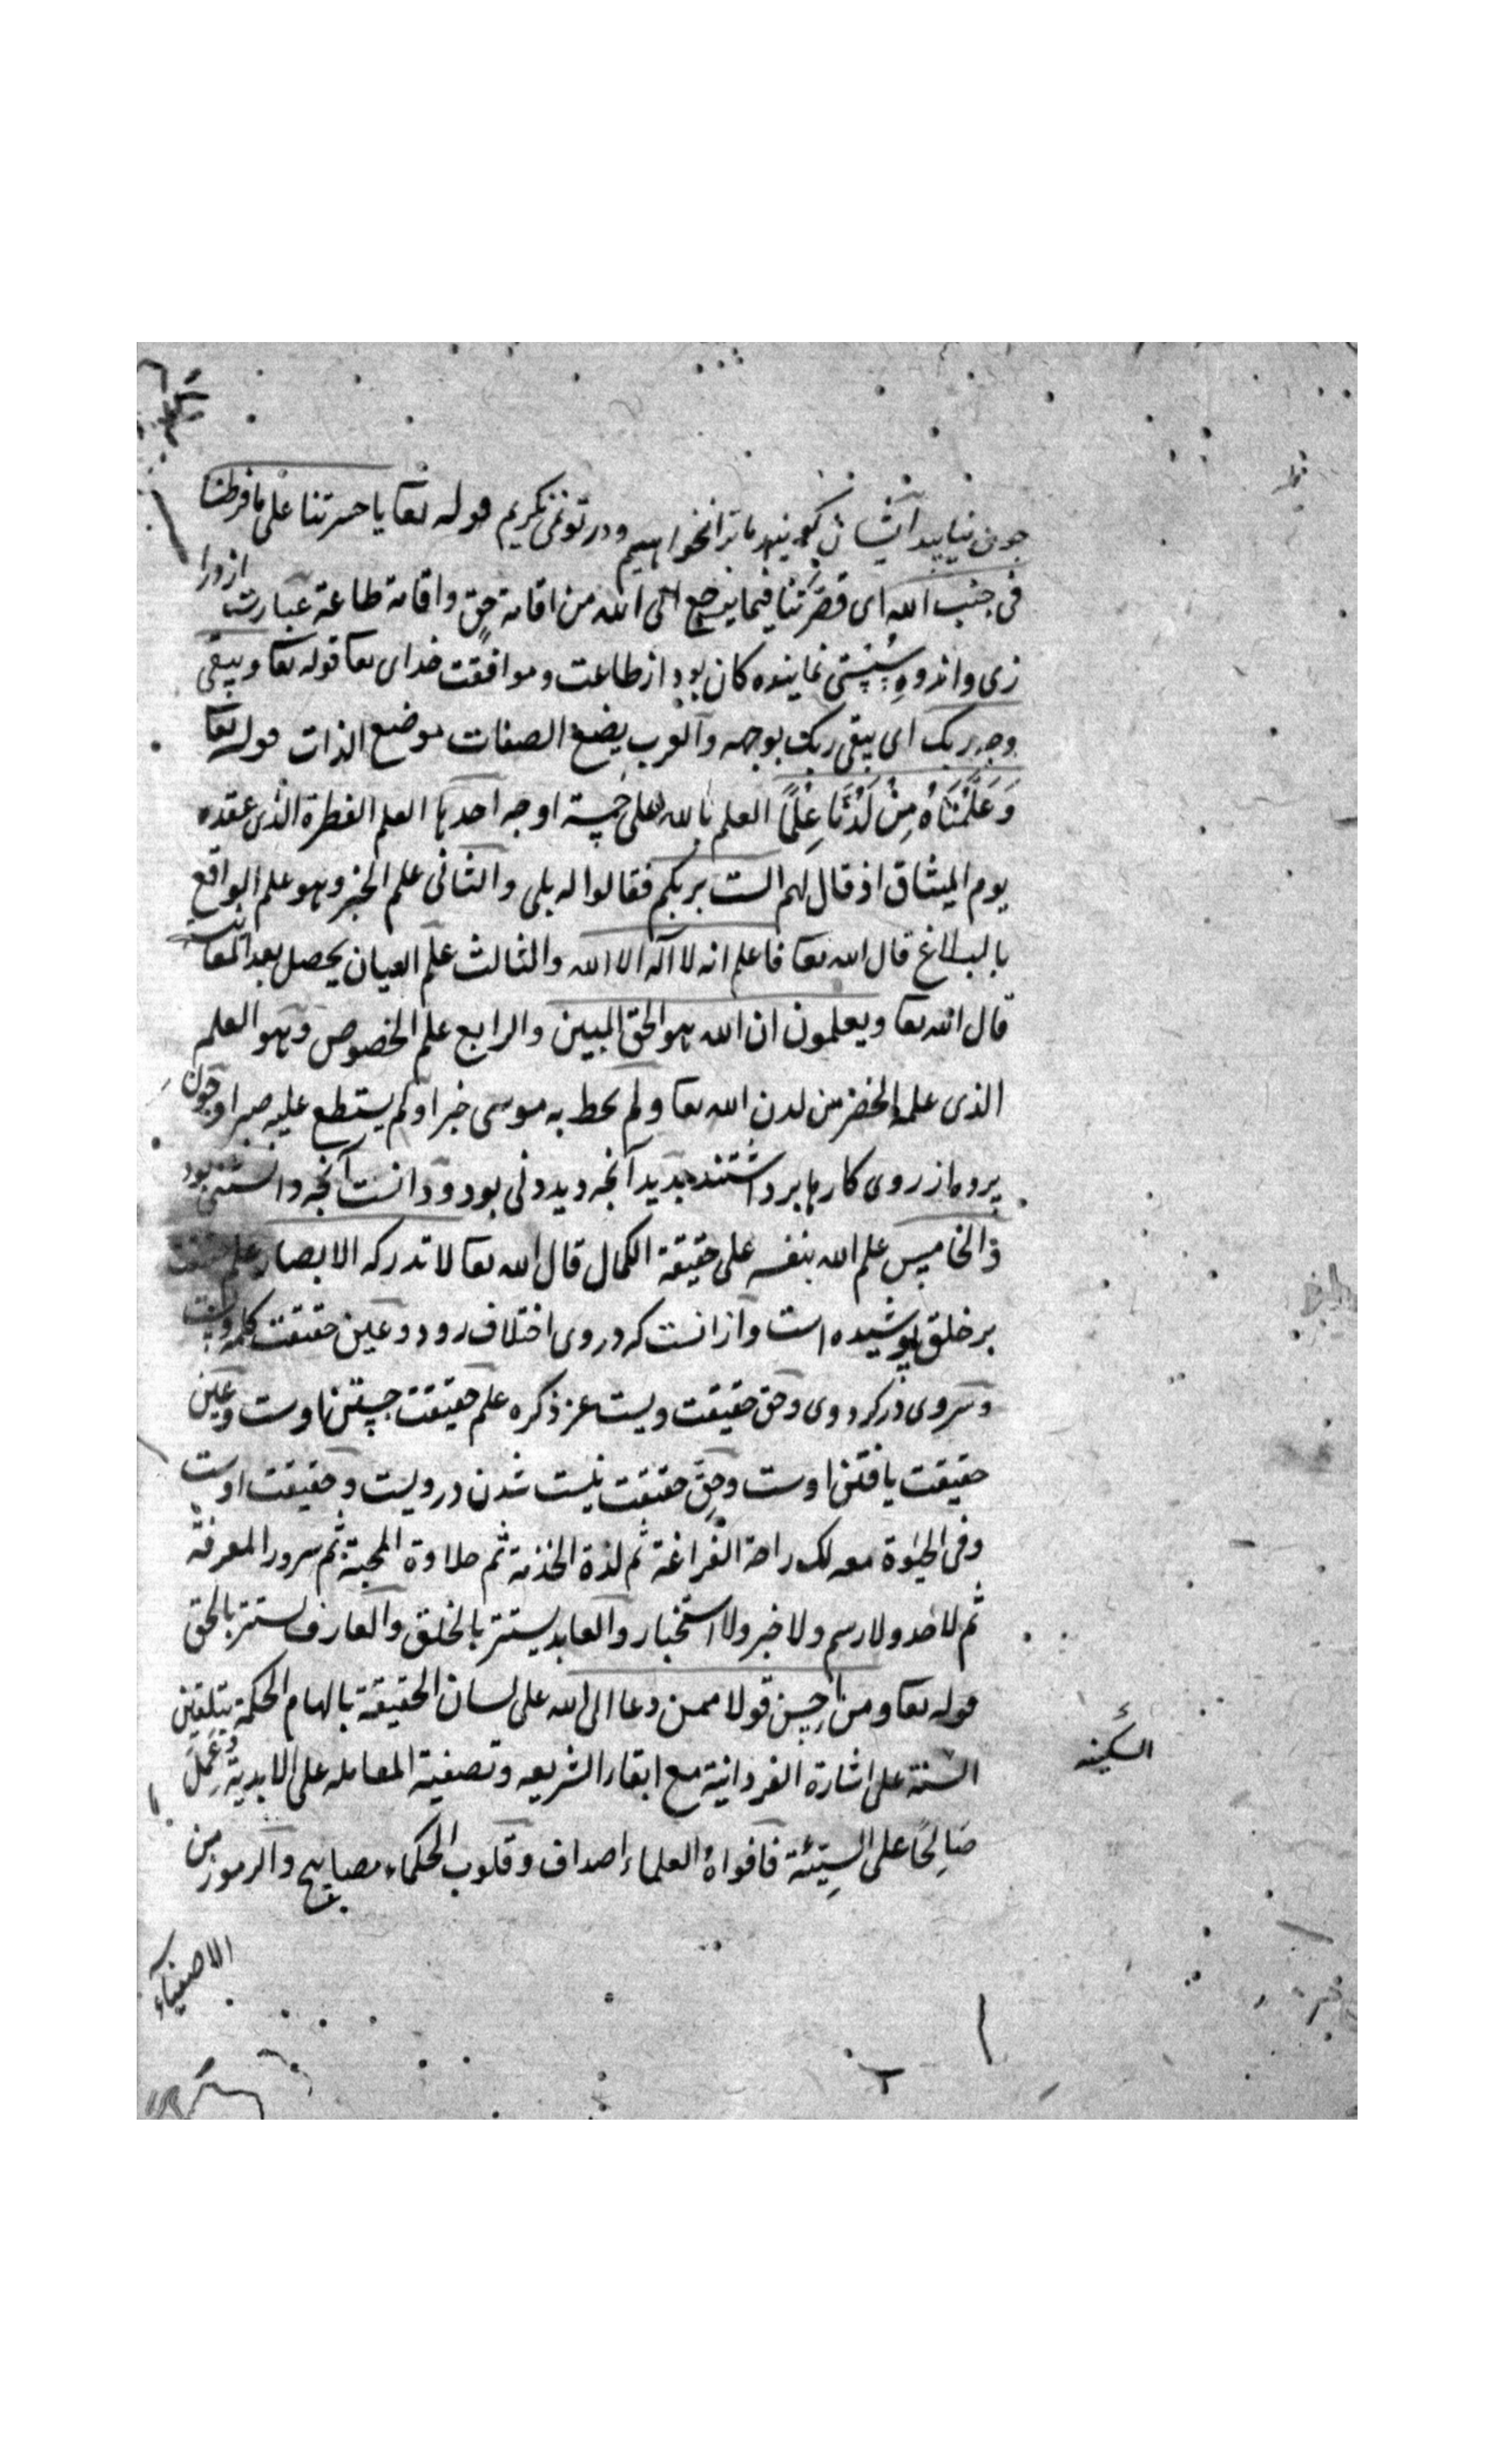 چون نیایید ایشان کویند ما ترا نخواهیم و در تو نمی نکریم قوله تعا یا حسرتنا علی ما فرطنا
فی جنب الله ای قصرتنا فیما یرجع الی الله من اقامة حق و اقامة طاعة عبارت
زی و اندوه نماینده کان بود از طاعت و موافقت خدای تعا قوله تعا و یبقی
وجه ربک ای یبقی ربک بوجهه و العرب یضع الصفات موضع الذات قوله تعا
وَعَلَّمْنَاهُ مِنْ لَدُنَّا عِلْمًا العلم بالله علی خمسة اوجه احدیها العلم الفطرة الذی عقده
یوم المیثاق اذ قال لهم الست بربکم فقالوا له بلی و الثانی علم الخبر وهو علم الواقع
بالبلاغ قال الله تعا فاعلم انه لا اله الا الله و الثالث علم العیان یحصل بعد
قال الله تعا و یعلمون ان الله هو الحق المبین و الرابع علم الخصوص و هو العلم
الذی علمه الخضر من لدن الله تعا و لم یحط به موسی خبرا و لم یستطع علیه صبرا و چون
پرده از روی کارها برداشتند بدید آنچه دیدنی بود و دانست آنچه دانستنی بود
و الخامس علم الله بنفسه علی حقیقة الکمال قال الله تعا لا تدرکه الابصار علم حقیقت
بر خلق پوشیده است و از انست که در وی اختلاف رود و عین حقیقت
و حق حقیقت ویست عز ذکره علم حقیقت جستن اوست و عین
حقیقت یافتن اوست و حق حقیقت نیست شدن درویست و حقیقت اوست
و فی الحیوة معه لک راحة الفراغة ثم لذة الخذمة ثم حلاوة المحبة ثم سرور المعرفة
ثم لا حد و لا رسم و لا خبر و لا استخبار و العابد یستتر بالخلق و العارف یستتر بالحق
قوله تعا و من احسن قولا ممن دعا الی الله علی لسان الحقیقة بالهام الحکمة بتلقین
السنة علی اشارة الفردانیة مع ابقاء الشریعه و تصفیة المعامله علی الابدیة وَعَمِلَ
صَالِحًا علی السیئة فافواهُ العلماء اصداف و قلوب الحکماء مصابیح و الرموز من
السکینه
الاصفیاء